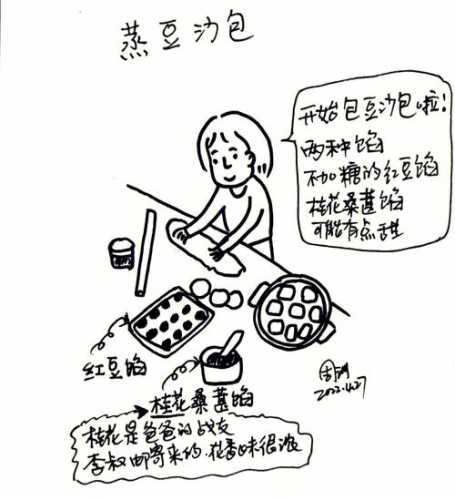 蒸豆沙包
开始包豆沙包啦!
两种馅
不加糖的红豆馅
桂花桑葚馅
可能有点甜
红豆馅
桂花桑葚馅
桂花是爸爸的战友
李叔邮寄来的.花香味很浓